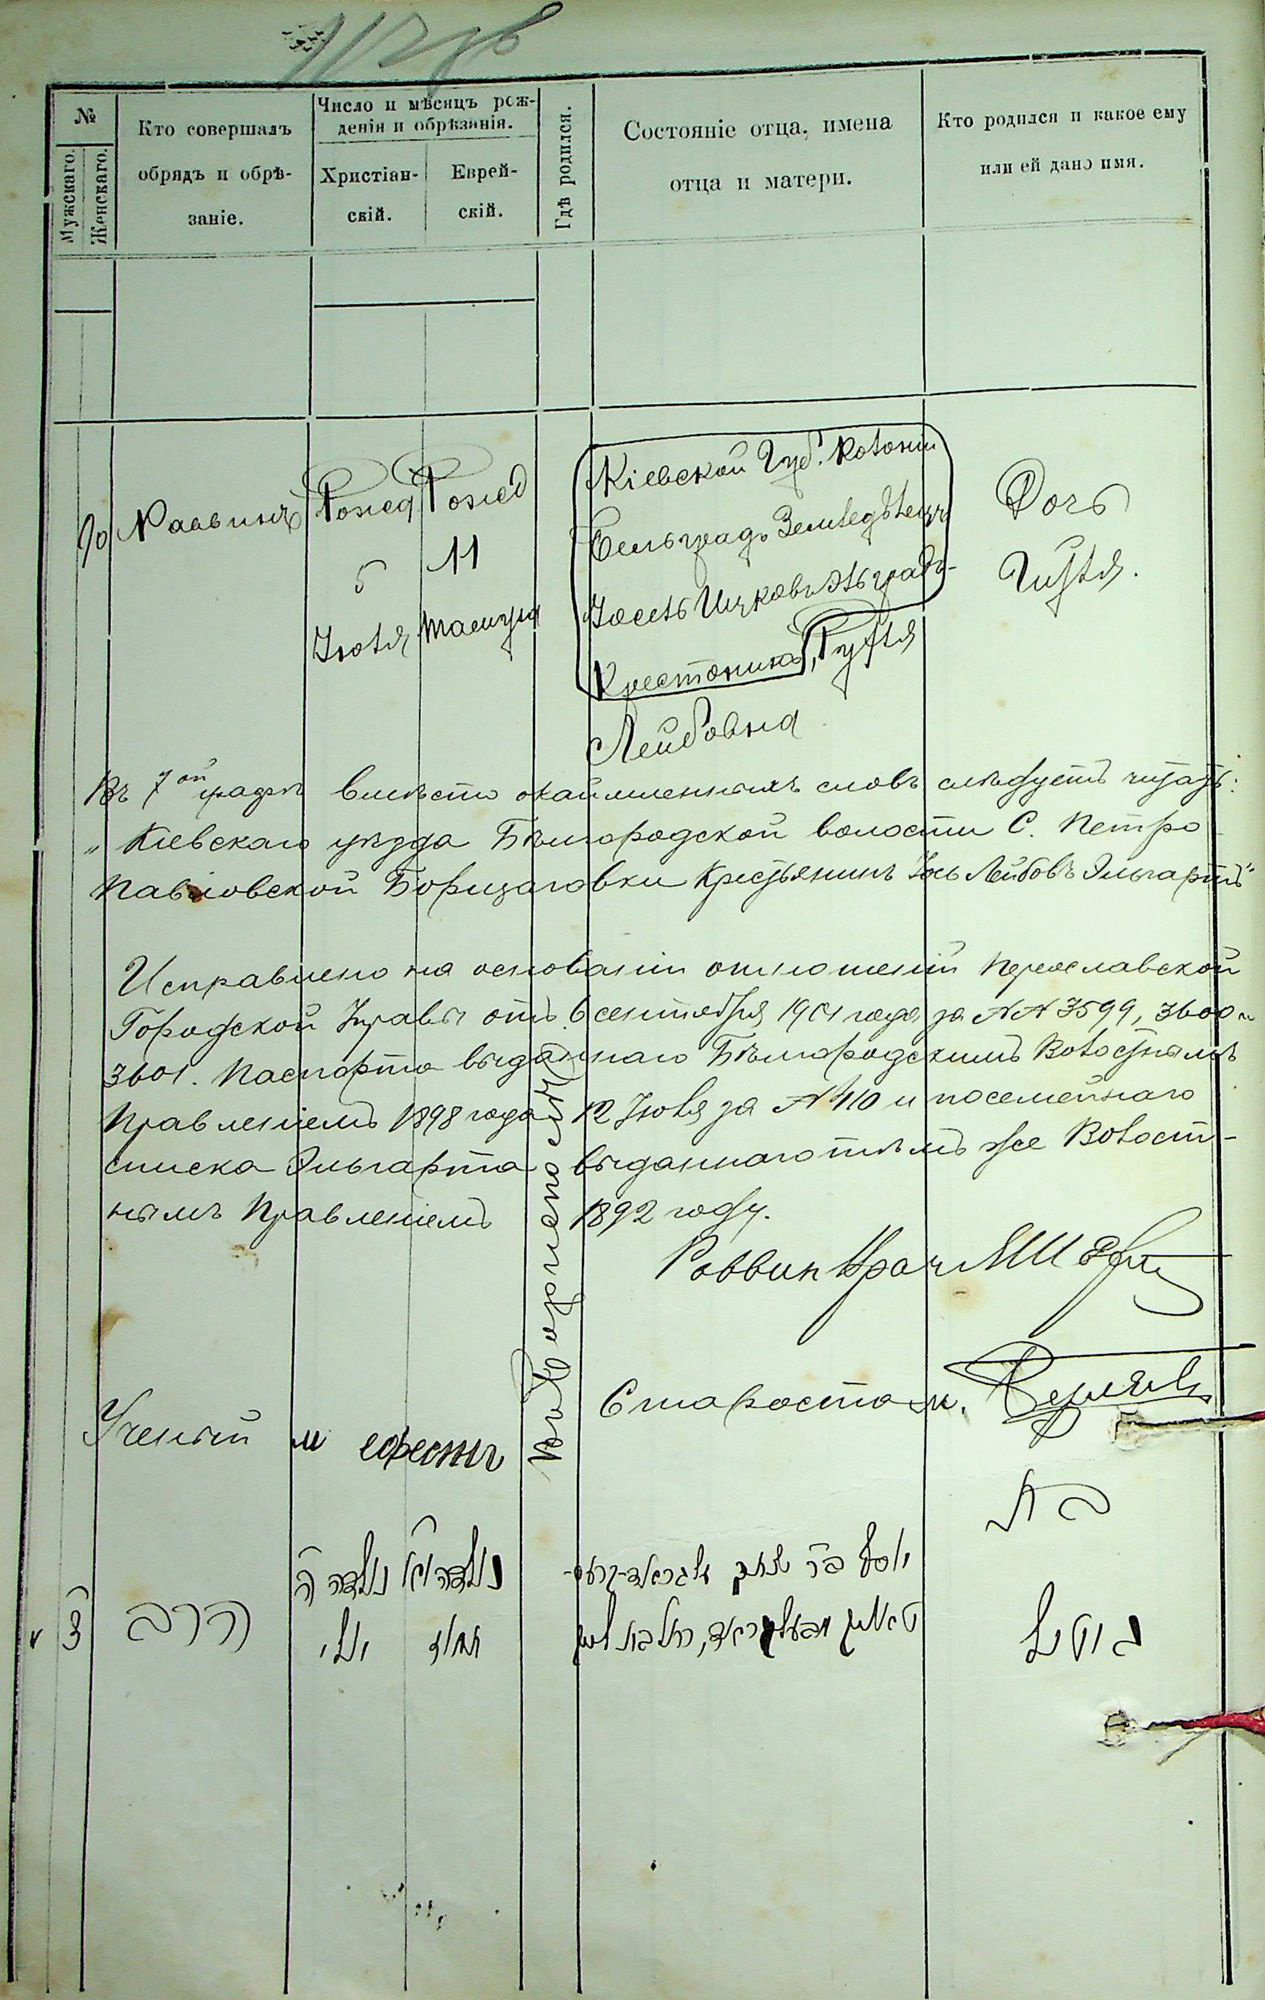 №
Мужскаго.
Женскаго.
Кто совершалъ
обрядъ и обрѣ-
заніе.
Число и мѣсяцъ рож-
денія и обрѣзанія.
Христіан-
скій.
Еврей-
скій.
Гдѣ родился.
Состояніе отца, имена
отца и матери.
Кто родился и какое ему
или ей дано имя.
90
Раввинъ
Рожед
6
Іюля
Рожед
11
Тамуза
Въ Переяславѣ
Кіевской Губ. Колоніи
Бельградъ Земледѣлецъ
Іосель Ицковъ Эльградъ-
Крестоникъ, Рухля
Лейбовна
Дочь
Гитля.
Въ 7ой графѣ вмѣсто окаймленныхъ словъ слѣдуетъ читать:
„Кіевскаго уѣзда Бѣлгородской волости С. Петро
Павловской Борщаговки Крестьянинъ Іось Лейбовъ Эльгартъ"
Исправлено на основаніи отношеній Переяславской
Городской Управы отъ 6 сентября 1901 года за №№ 3599, 3600 и
3601. Паспорта выданнаго Бѣлгородскимъ Волостнымъ
Правленіемъ 1898 года 12 Іюля за № 410 и посемейнаго
списка Эльгарта выданнаго тѣмъ же Волост-
нымъ Правленіемъ 1892 году.
Раввин Врач
Староста
Ученый
בת
נולדה ה
יולי
נולדה יא
תמוז
הרב
צ
גוטיל